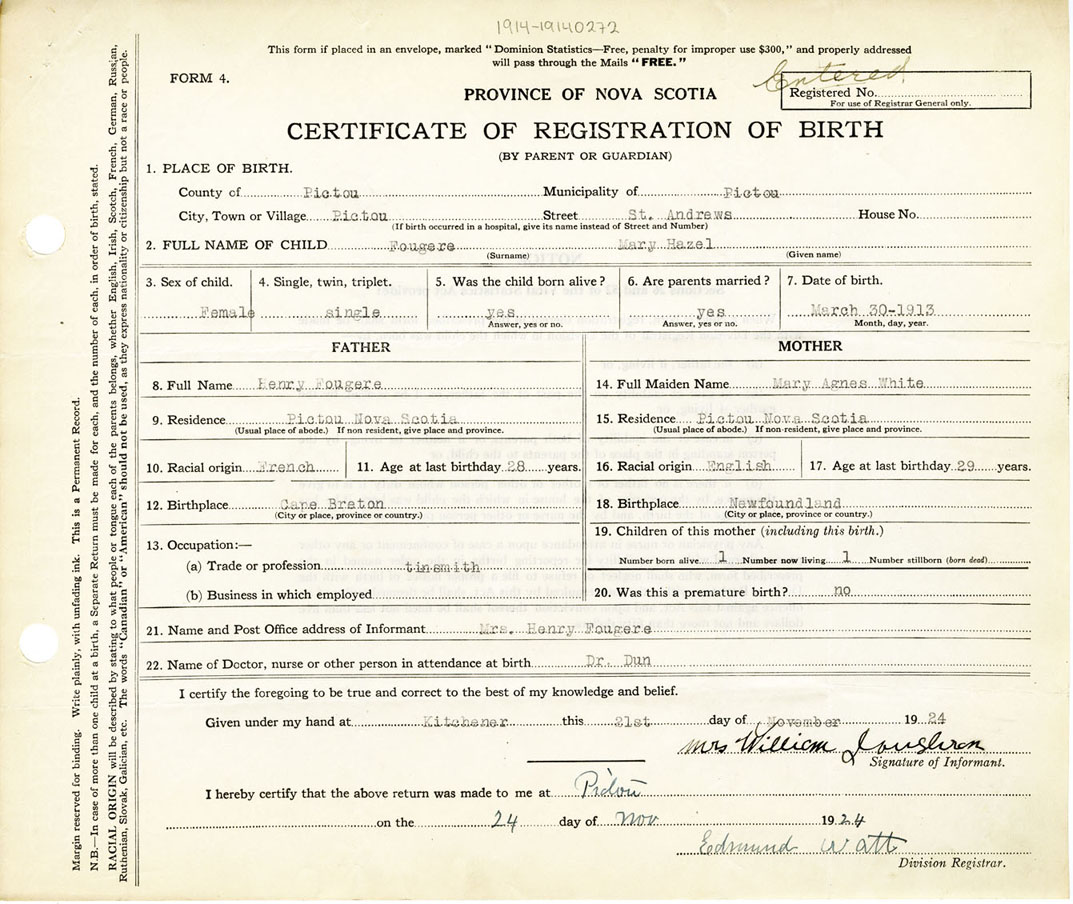 1914-19140272
This form if placed in an envelope, marked "Dominion Statistics—Free, penalty for improper use $300," and properly addressed
will pass through the Mails "FREE."
FORM 4.
Entered
Registered No.
For use of Registrar General only.
PROVINCE OF NOVA SCOTIA
CERTIFICATE OF REGISTRATION OF BIRTH
(BY PARENT OR GUARDIAN)
1. PLACE OF BIRTH.
County of Pictou Municipality of Pictou
City, Town or Village Pictou Street St. Andrews House No.
(If birth occurred in a hospital, give its name instead of Street and Number)
2. FULL NAME OF CHILD Fougere Mary Hazel
(Surname) (Given name)
3. Sex of child. 4. Single, twin, triplet. 5. Was the child born alive? 6. Are parents married? 7. Date of birth.
Female single yes yes March 30-1913
Answer, yes or no. Answer, yes or no. Month, day, year.
FATHER
8. Full Name Henry Fougere
9. Residence Pictou Nova Scotia
(Usual place of abode.) If non resident, give place and province.
10. Racial origin French 11. Age at last birthday 28 years.
12. Birthplace Cape Breton
(City or place, province or country.)
13. Occupation:—
(a) Trade or profession tinsmith
(b) Business in which employed
MOTHER
14. Full Maiden Name Mary Agnes White
15. Residence Pictou Nova Scotia
(Usual place of abode.) If non-resident, give place and province.
16. Racial origin English 17. Age at last birthday 29 years.
18. Birthplace Newfoundland
(City or place, province or country.)
19. Children of this mother (including this birth.)
Number born alive 1 Number now living 1 Number stillborn (born dead)
20. Was this a premature birth? no
21. Name and Post Office address of Informant Mrs. Henry Fougere
22. Name of Doctor, nurse or other person in attendance at birth Dr. Dun
I certify the foregoing to be true and correct to the best of my knowledge and belief.
Given under my hand at Kitchener this 21st day of November 1924
Mrs William
Signature of Informant.
I hereby certify that the above return was made to me at Pictou
on the 24 day of Nov 1924
Edmund Watt
Division Registrar.
Margin reserved for binding. Write plainly, with unfading ink. This is a Permanent Record.
N.B.—In case of more than one child at a birth, a Separate Return must be made for each, and the number of each, in order of birth, stated.
RACIAL ORIGIN will be described by stating to what people or tongue each of the parents belongs, whether English, Irish, Scotch, French, German, Russian,
Ruthenian, Slovak, Galician, etc. The words "Canadian" or "American" should not be used, as they express nationality or citizenship but not a race or people.